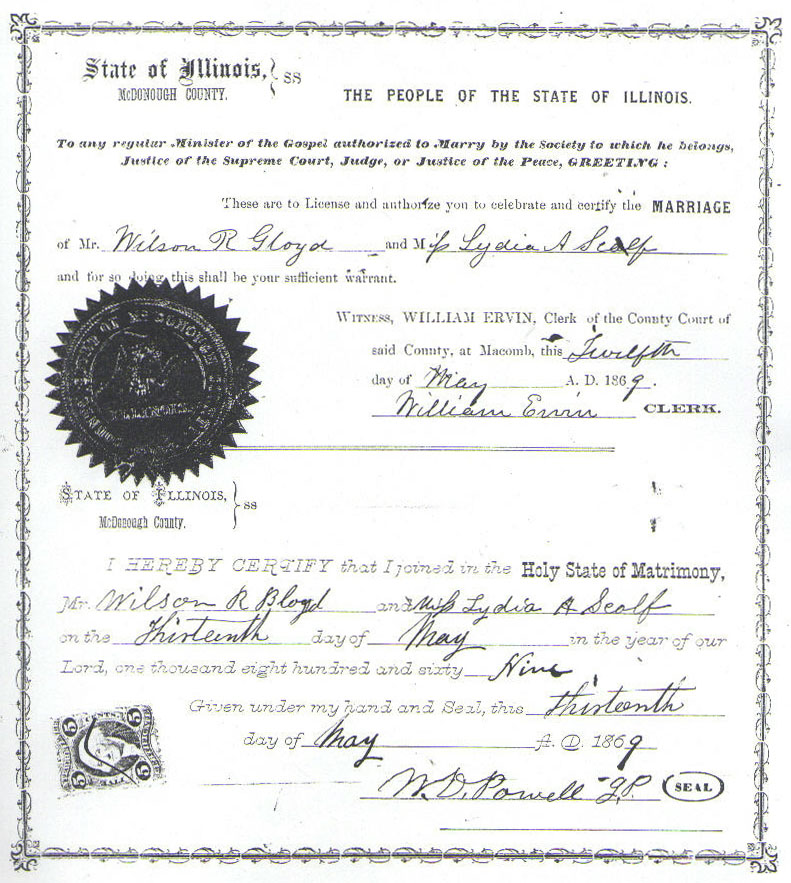 State of Illinois, } SS
McDONOUGH COUNTY.
THE PEOPLE OF THE STATE OF ILLINOIS.
To any regular Minister of the Gospel authorized to Marry by the Society to which he belongs,
Justice of the Supreme Court, Judge, or Justice of the Peace, GREETING:
These are to License and authorize you to celebrate and certify the MARRIAGE
of Mr. Wilson R Gloyd and Miss Lydia A Scalf
and for so doing, this shall be your sufficient warrant.
WITNESS, WILLIAM ERVIN, Clerk of the County Court of
said County, at Macomb, this Twelfth
day of May A. D. 1869.
William Ervin CLERK.
ILLINOIS
STATE OF ILLINOIS, } SS
McDonough County.
I HEREBY CERTIFY that I joined in the Holy State of Matrimony,
Mr. Wilson R Bloyd and Miss Lydia A Scalf
on the Thirteenth day of May in the year of our
Lord, one thousand eight hundred and sixty Nine
Given under my hand and Seal, this Thirteenth
day of May A. D. 1869
W. D. Powell J.P. SEAL
5 5
5 5